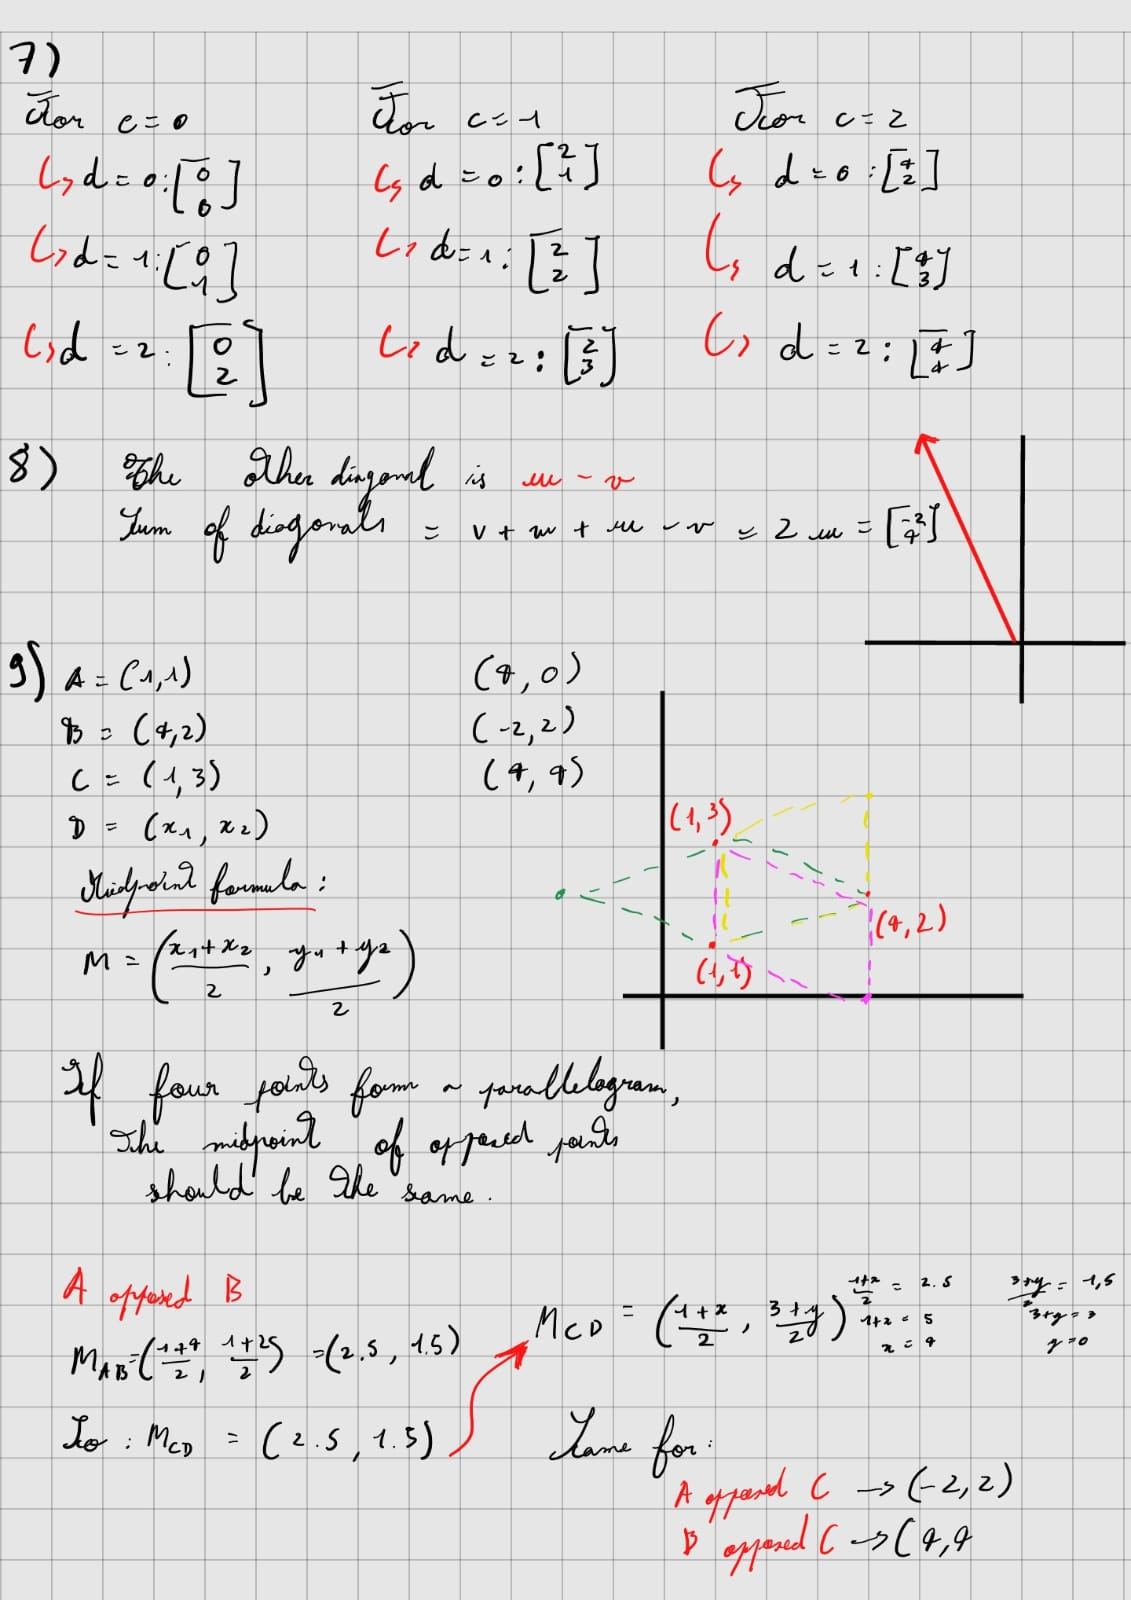 7)
For c = 0 For c = 1 For c = 2
↳ d = 0 : [0 0] ↳ d = 0 : [2 1] ↳ d = 0 : [4 2]
↳ d = 1 : [0 1] ↳ d = 1 : [2 2] ↳ d = 1 : [4 3]
↳ d = 2 : [0 2] ↳ d = 2 : [2 3] ↳ d = 2 : [4 4]
8) The other diagonal is w - v
Sum of diagonals = v + w + w - v = 2 w = [-2 4]
9) A = (1,1) (4,0)
B = (4,2) (-2,2)
C = (1,3) (4,4)
D = (x1, x2)
(1,3)
(4,2)
(1,1)
Midpoint formula :
M = ((x1+x2)/2, (y1+y2)/2)
If four points form a parallelogram,
the midpoint of opposed points
should be the same.
A opposed B
M_AB = ((1+4)/2, (1+2)/2) = (2.5, 1.5)
So : M_CD = (2.5, 1.5)
M_CD = ((1+x)/2, (3+y)/2)
(1+x)/2 = 2.5
1+x = 5
x = 4
(3+y)/2 = 1,5
3+y = 3
y = 0
Same for :
A opposed C → (-2,2)
B opposed C → (4,4